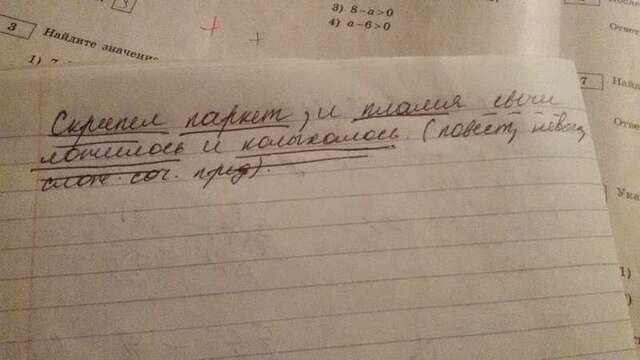 3) 8 – a > 0
4) a – 6 > 0
3
а
Найдите значение
1) 7
Ответ
7
Най
Ответ
Ука
1)
Скрипел паркет, и пламя свечи
ложилось и колыхалось. (повест, невоск,
слож. соч. пред).